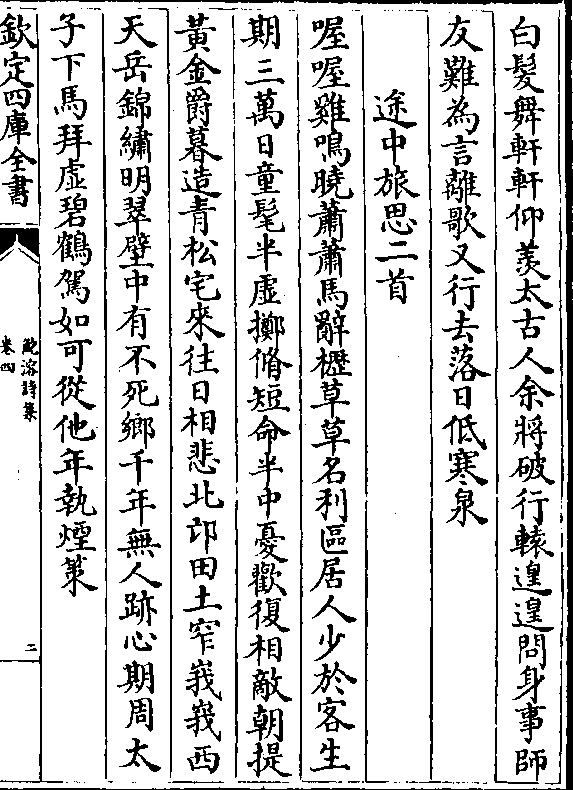 白髮舞軒軒仰羨太古人余將破行轅遑遑問身事師
友難為言離歌又行去落日低寒泉
途中旅思二首
喔喔雞鳴曉蕭蕭馬辭櫪草草名利區居人少於客生
期三萬日童髦半虛擲脩短命半中憂歡復相敵朝提
黃金爵暮造青松宅來往日相悲北邙田土窄峩峩西
天岳錦繡明翠壁中有不死鄉千年無人跡心期周太
子下馬拜虛碧鶴駕如可從他年執煙策
欽定四庫全書
鮑溶詩集
卷四
二